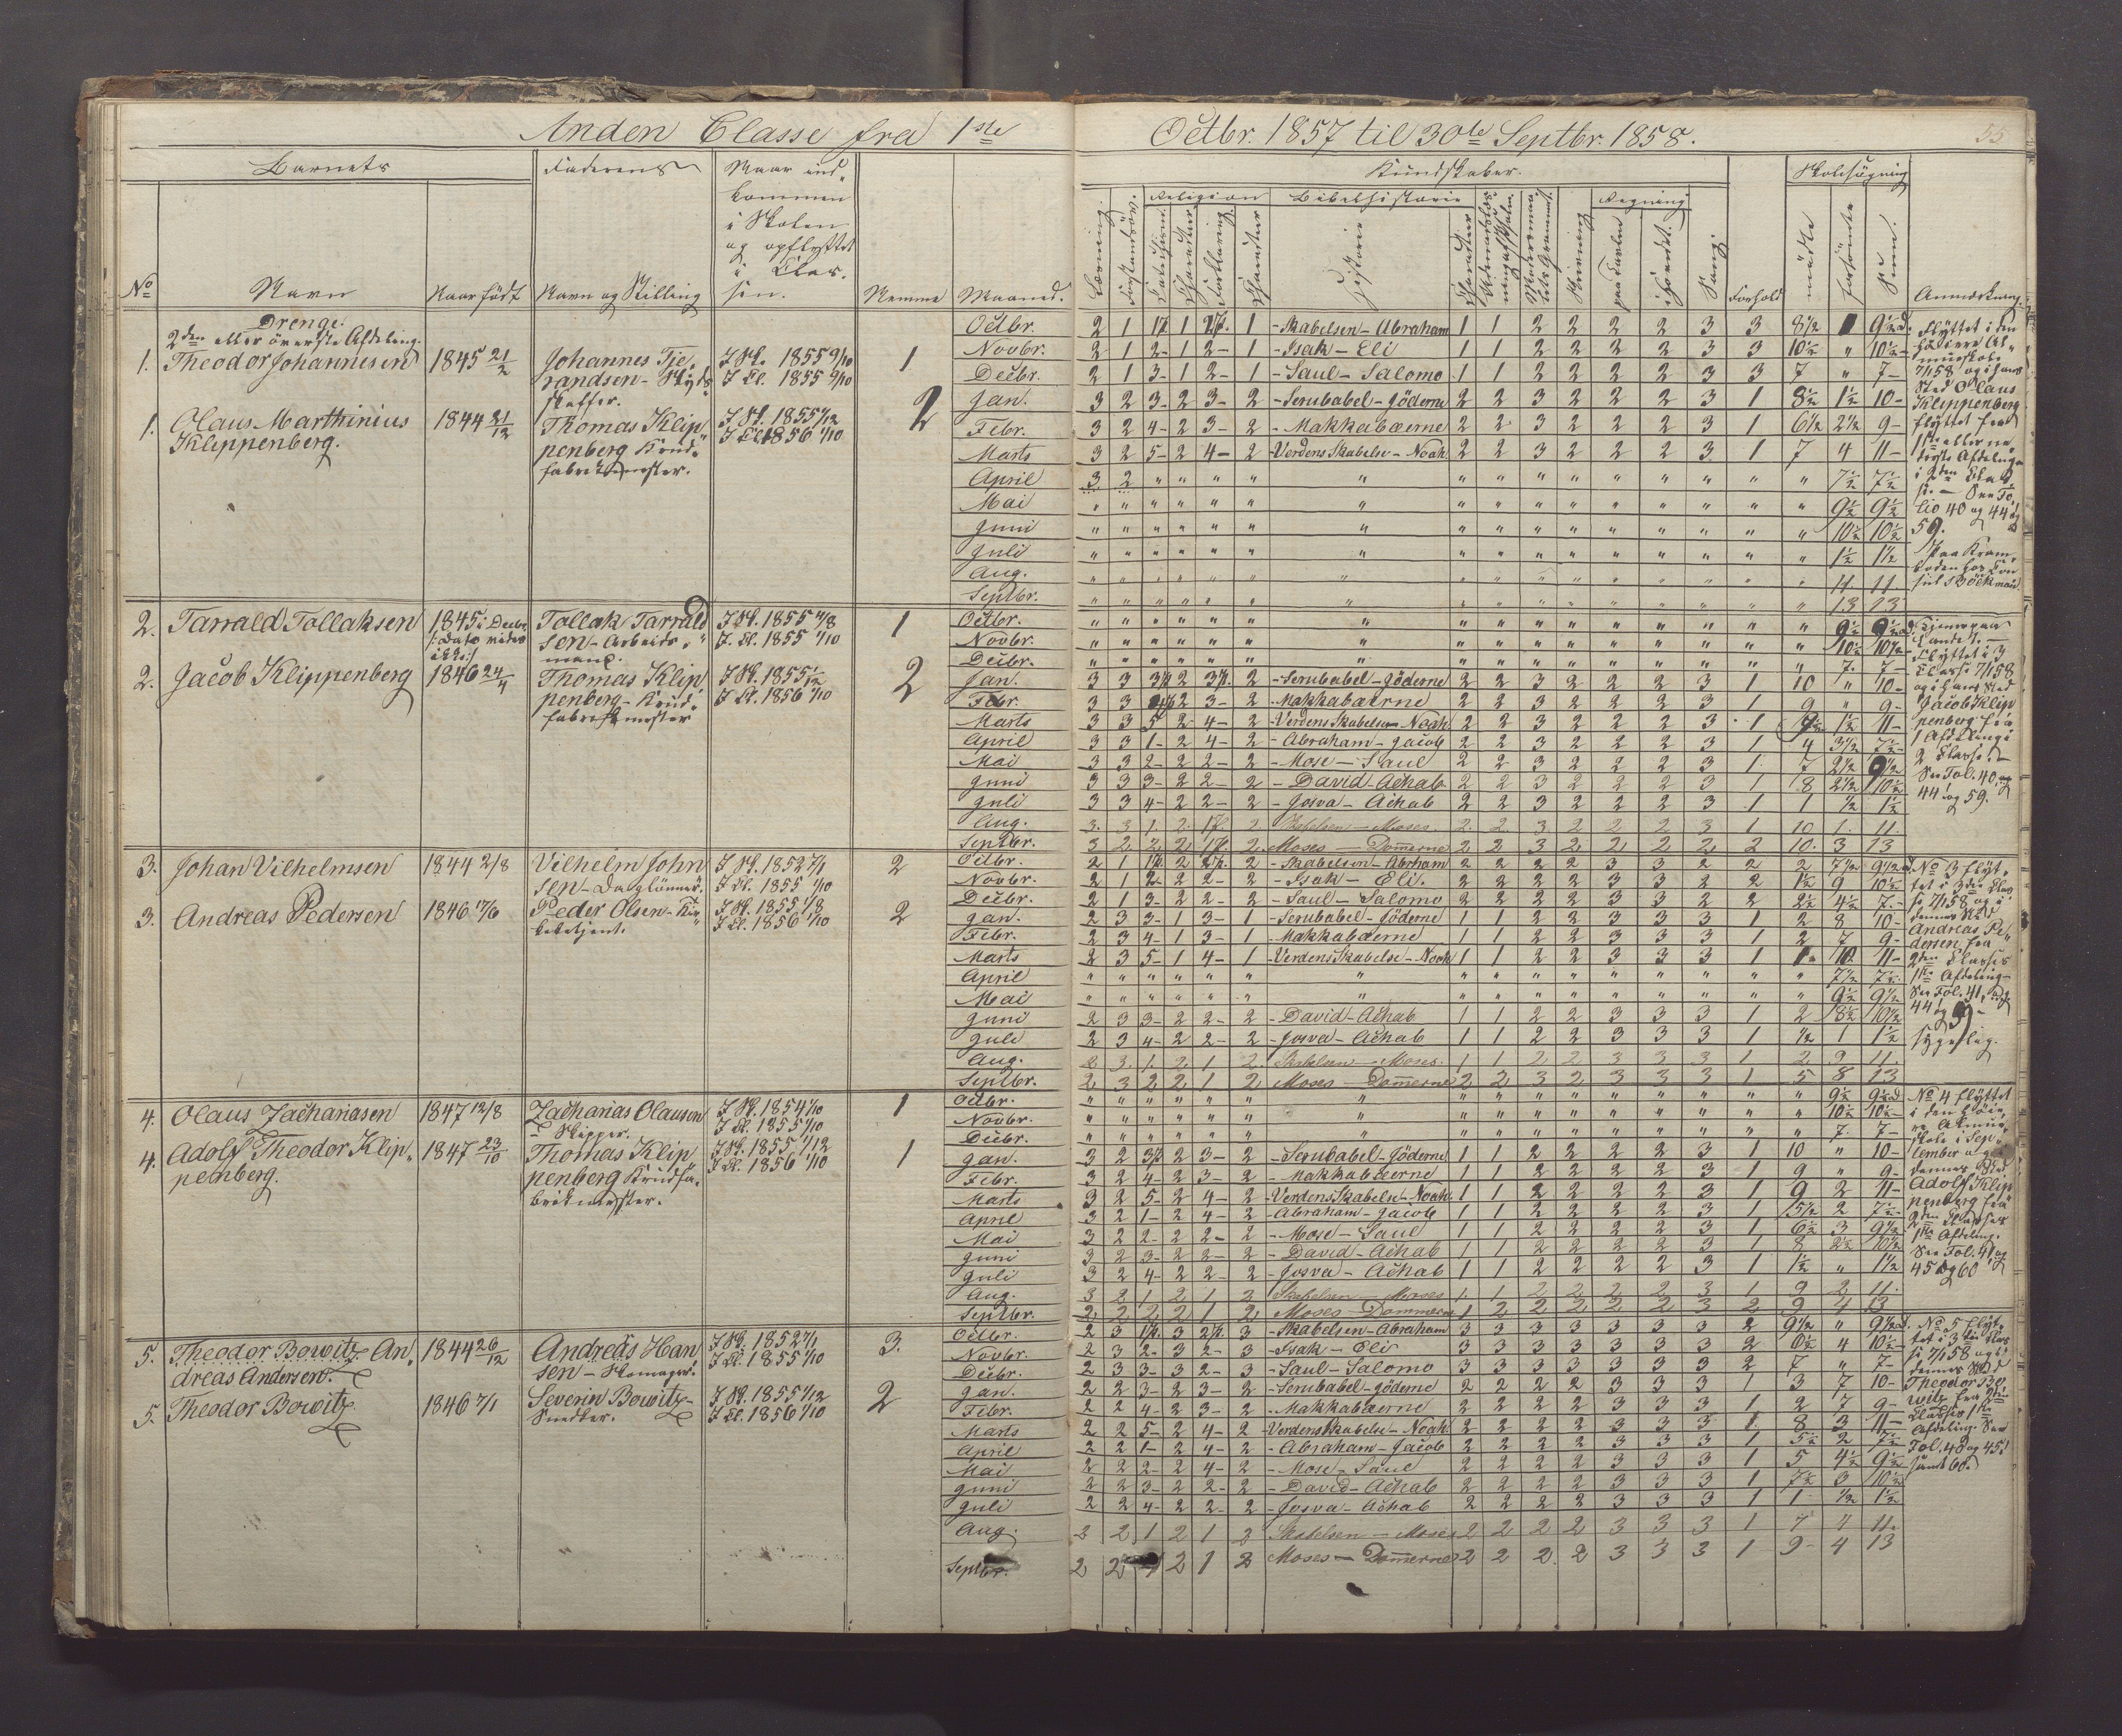 Anden Classe fra 1ste Octbr. 1857 til 30te Septbr. 1858.
55
Barnets
Faderens
Naar ind-
kommen
i Skolen
og opflyttet
i Clas-
sen.
No
Navn
Naar født
Navn og Stilling
Nemme
Maaned.
Kundskaber.
Religion
Bibelhistorie
Regning
Skolesøgning
Læsning.
Forstandsøv.
Catechism.
Charakter
Forklaring
Charakter
Historie
Charakter
Skrivning
paa Tavlen
i Hovedet.
Sang.
Forhold
mødte
forsømte
Sum.
Anmærkning.
Drenge.
2den eller øverste Afdeling.
1. Theodor Johannesen
1845 21/2
Johannes Tje-
randsen - Skyds-
skaffer.
I Sk. 1855 9/10
I Cl. 1855 9/10
1
1. Olaus Marthinius
Klippenberg.
1844 21/12
Thomas Klip-
penberg Krud-
fabrikmester.
I Sk. 1855 1/12
I Cl. 1856 1/10
2
Octbr. 2 1 1½ 1 2½. 1 - Skabelsen - Abraham 1 1 2 2 2 2 3 3 8½ 1 9½ d.
Novbr. 2 1 2- 1 2- 1 - Isak - Eli 1 1 2 2 2 2 3 3 10½ " 10½ -
Decbr. 2 1 3- 1 2- 1 - Saul - Salomo 1 1 2 2 2 2 3 3 7 " 7 -
Jan. 3 2 3- 2 3- 2 - Serubabel - Jöderne 2 2 3 2 2 2 3 1 8½ 1½ 10 -
Febr. 3 2 4- 2 3- 2 - Makkabæerne 2 2 3 2 2 2 3 1 6½ 2½ 9 -
Marts 3 2 5- 2 4- 2 - Verdens Skabelse - Noah. 2 2 3 2 2 2 3 1 7 4 11 -
April 3 2 " " " " " " " " " " " " " " 7½ 7½
Mai " " " " " " " " " " " " " " " " 9½ 9½
Juni " " " " " " " " " " " " " " " " 10½ 10½
Juli " " " " " " " " " " " " " " " " 1½ 1½
Aug. " " " " " " " " " " " " " " " " 11. 11
Septbr. " " " " " " " " " " " " " " " " 13 13
Flyttet i den
høiere Al-
mueskole
7/1 58 og i hans
Sted Olaus
Klippenberg
flyttet fra
1ste eller ne-
derste Afdeling
i 2den Clas-
se. - See Fo-
lio 40 og 44 og
59.
2. Tarrald Tollaksen
1845 i Decbr
Tollak Tarrald-
sen - Arbeids-
mand.
I Sk. 1855 4/8
I Cl. 1855 1/10
1
2. Jacob Klippenberg
1846 24/4
Thomas Klip-
penberg - Krud-
fabrikmester
I Sk. 1855 1/12
I Cl. 1856 1/10
2
Octbr. " " " " " " " " " " " " " " " " 9½ 9½ d
Novbr. " " " " " " " " " " " " " " " " 10½ 10½
Decbr. " " " " " " " " " " " " " " " " 7. 7 -
Jan. 3 3 3½ 2 3½. 2 - Serubabel - Jöderne 2 2 3 2 2 2 3 1 10 " 10 -
Febr. 3 3 4½ 2 3- 2 - Makkabæerne 2 2 3 2 2 2 3 1 9 " 9 -
Marts 3 3 5- 2 4- 2 - Verdens Skabelse - Noah 2 2 3 2 2 2 3 1 9½ 1½ 11 -
April 3 3 1- 2 4- 2 - Abraham - Jacob 2 2 3 2 2 2 3 1 4 3½ 7½
Mai 3 3 2- 2 2- 2 - Mose - Saul 2 2 3 2 2 2 3 1 7 2½ 9½
Juni 3 3 3- 2 2- 2 - David - Achab. 2 2 3 2 2 2 3 1 8 2½ 10½
Juli 3 3 4- 2 2- 2 - Josva - Achab 2 2 3 2 2 2 3 1 1 ½ 1½
Aug. 3. 3 1. 2. 1½. 2 Skabelsen - Moses. 2. 2. 3 2 2 2 3 1 10 1. 11.
Septbr. 3 2 2 2 1½ 2. Moses - Dommerne 2 2 3 2 2 2 2 2 10. 3 13
Flyttet i 3
Classe 7/1 58
og i hans Sted
Jacob Klip-
penberg fra
1 Afdeling i
2 Classe. -
See Fol. 40 og
44 og 59.
3. Johan Vilhelmsen
1844 2/8
Vilhelm John-
sen - Daglönner.
I Sk. 1852 7/1
I Cl. 1855 1/10
2
3. Andreas Pedersen
1846 17/6
Peder Olsen -
I Sk. 1855 1/8
I Cl. 1856 1/10
2
Octbr. 2 1 1½ 2 2½. 2 - Skabelsen - Abraham 2 2 2 2 3 3 2 2 2 7½ 9½ d
Novbr. 2 1 2- 2 2- 2 - Isak - Eli. 2 2 2 2 3 3 2 2 1½ 9 10½
Decbr. 2 1 3- 2 2- 2 - Saul - Salomo 2 2 2 2 3 3 2 2 2½ 4½ 7. -
Jan. 2 3 3- 1 3- 1 - Serubabel - Jöderne 1 1 2 2 3 3 3 1 2 8 10 -
Febr. 2 3 4- 1 3- 1 - Makkabæerne 1 1 2 2 3 3 3 1 2 7 9 -
Marts 2 3 5- 1 4- 1 - Verdens Skabelse - Noah 1 1 2 2 3 3 3 1 1. 10. 11 -
April " " " " " " " " " " " " " " " " 7½ 7½
Mai " " " " " " " " " " " " " " " " 9½ 9½
Juni 2 3 3- 2 2- 2 - David - Achab 1 1 2 2 3 3 3 1 2 8½ 10½
Juli 2 3 4- 2 2- 2 - Josva - Achab 1 1 2 2 3 3 3 1 ½ 1 1½
Aug. 2 3. 1. 2 1 2. Skabelsen - Moses. 1 1 2 2 3 3 3 1 2 9 11.
Septbr. 2 3 2 2 1 2 Moses - Dommerne 2 2 3 2 3 3 3 1 5 8 13
No 3 flyt-
tet i 3die Clas-
se 7/1 58 og i
dennes Sted
Andreas Pe-
dersen fra
2den Classes
1ste Afdeling -
See Fol. 41,
44 og 59 -
sygelig.
4. Olaus Zachariasen
1847 12/8
Zacharias Olausen
- Skipper.
I Sk. 1854 1/10
I Cl. 1855 1/10
1
4. Adolf Theodor Klip-
penberg.
1847 23/10
Thomas Klip-
penberg Krudfa-
brikmester.
I Sk. 1855 1/12
I Cl. 1856 1/10
1
Octbr. " " " " " " " " " " " " " " " " 9½ 9½ d
Novbr. " " " " " " " " " " " " " " " " 10½ 10½ -
Decbr. " " " " " " " " " " " " " " " " 7. 7 -
Jan. 3 2 3½ 2 3- 2 - Serubabel - Jöderne 1 1 2 2 2 2 3 1 10 " 10 -
Febr. 3 2 4- 2 3- 2 - Makkabæerne 1 1 2 2 2 2 3 1 9 " 9 -
Marts 3 2 5- 2 4- 2 - Verdens Skabelse - Noah. 1 1 2 2 2 2 3 1 9 2 11 -
April 3 2 1- 2 4- 2 - Abraham - Jacob 1 1 2 2 2 2 3 1 5½ 2 7½ -
Mai 3 2 2- 2 2- 2 - Mose - Saul 1 1 2 2 2 2 3 1 6½ 3 9½
Juni 3 2 3- 2 2- 2 - David - Achab 1 1 2 2 2 2 3 1 8 2½ 10½
Juli 3 2 4- 2 2- 2 - Josva - Achab 1 1 2 2 2 2 3 1 1½ " 1½
Aug. 3 2 1 2 1 2 Skabelsen - Moses 1 1 2 2 2 2 3 1 9 2 11.
Septbr. 2 2 2 2 1 2 Moses - Dommerne 1 2 2 2 2 2 3 2 9 4 13
No 4 flyttet
i den høie-
re Almue-
skole i Sep-
tember og i
dennes Sted
Adolf Klip-
penberg fra
2den Classes
1ste Afdeling.
See Fol. 41 og
45 og 60
5. Theodor Bowitz An-
dreas Andersen.
1844 26/12
Andreas Han-
sen - Skomager.
I Sk. 1852 7/1
I Cl. 1855 1/10
3.
5. Theodor Bowitz
1846 7/1
Severin Bowitz -
Snedker.
I Sk. 1855 1/12
I Cl. 1856 1/10
2
Octbr. 2 3 1½. 3 2½. 3 - Skabelsen - Abraham 3 3 3 3 3 3 3 2 9½ " 9½ d.
Novbr. 2 3 2- 3 2- 3 - Isak - Eli 3 3 3 3 3 3 3 2 6½ 4 10½ -
Decbr. 2 3 3- 3 2- 3 - Saul - Salomo 3 3 3 3 3 3 3 2 7 " 7 -
Jan. 2 2 3- 2 3- 2 - Serubabel - Jöderne 2 2 2 2 3 3 3 1 3 7 10 -
Febr. 2 2 4- 2 3- 2 - Makkabæerne 2 2 2 2 3 3 3 1 2 7 9 -
Marts 2 2 5- 2 4- 2 - Verdens Skabelse - Noah. 2 2 2 2 3 3 3 1 8 3 11 -
April 2 2 1- 2 4- 2 - Abraham - Jacob 2 2 2 2 3 3 3 1 5½ 2 7½
Mai 2 2 2- 2 4- 2 - Mose - Saul 2 2 2 2 3 3 3 1 5 4½ 9½
Juni 2 2 3- 2 2- 2 - David - Achab 2 2 2 2 3 3 3 1 7½ 3 10½
Juli 2 2 4- 2 2- 2 - Josva - Achab 2 2 2 2 3 3 3 1 1 ½ 1½
Aug. 2 2 1 2 1 2 Skabelsen - Moses 2 2 2 2 3 3 3 1 7 4 11.
Septbr. 2 2 2 1 2 Moses - Dommerne 2 2 2 2 3 3 3 1 9 - 4 13
No 5 flyt-
tet i 3die Clas-
se 7/1 58 og i
dennes Sted
Theodor Bo-
witz fra 2den
Classes 1ste
Afdeling. See
Fol. 40 og 45
samt 60.